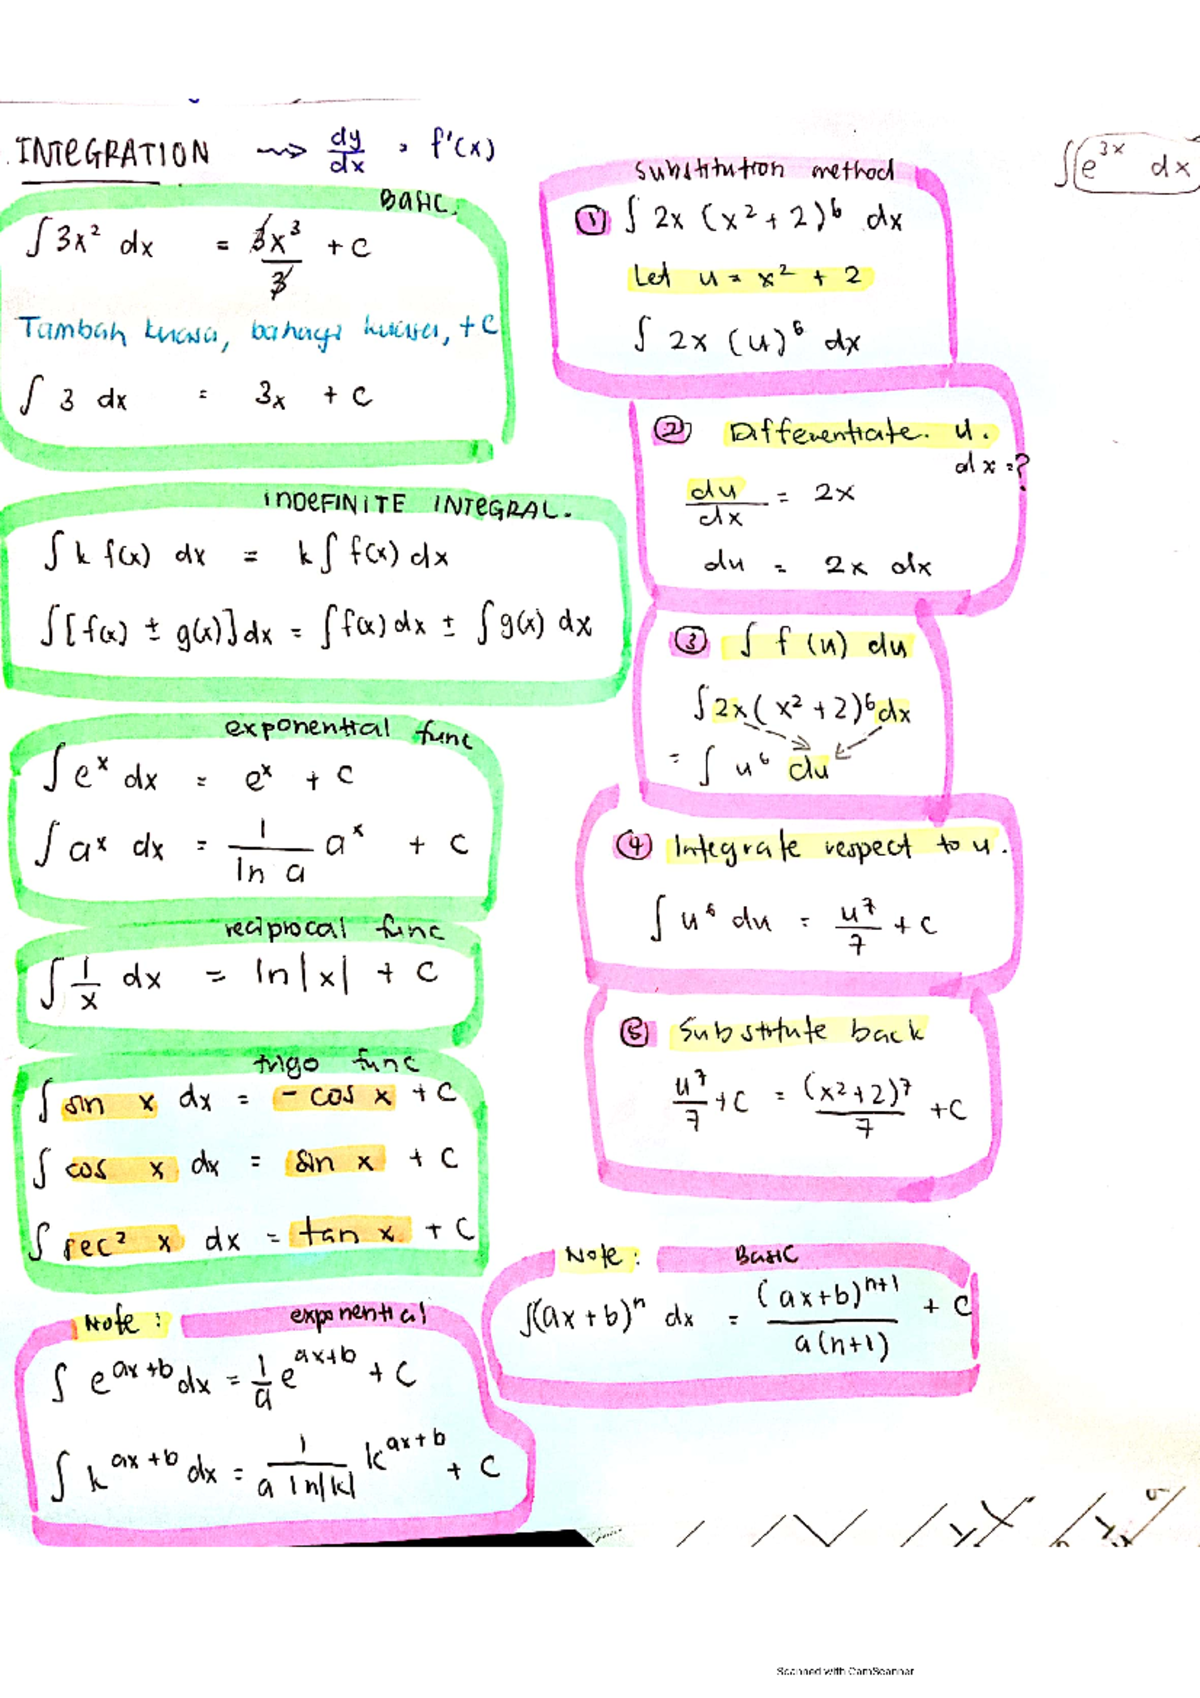 INTEGRATION ⇝ dy/dx , f'(x)
BASIC.
∫ 3x² dx = 3x³/3 + C
Tambah kuasa, bahagi kuasa, + C
∫ 3 dx = 3x + C
INDEFINITE INTEGRAL.
∫ k f(x) dx = k ∫ f(x) dx
∫ [f(x) ± g(x)] dx = ∫ f(x) dx ± ∫ g(x) dx
exponential func
∫ e^x dx = e^x + C
∫ a^x dx = 1/ln a a^x + C
reciprocal func
∫ 1/x dx = ln|x| + C
trigo func
∫ sin x dx = - cos x + C
∫ cos x dx = sin x + C
∫ sec² x dx = tan x + C
Note : exponential
∫ e^(ax+b) dx = 1/a e^(ax+b) + C
∫ k^(ax+b) dx = 1/(a ln|k|) k^(ax+b) + C
Substitution method
① ∫ 2x (x² + 2)⁶ dx
Let u = x² + 2
∫ 2x (u)⁶ dx
② Differentiate. u.
dx = ?
du/dx = 2x
du = 2x dx
③ ∫ f(u) du
∫ 2x (x² + 2)⁶ dx
= ∫ u⁶ du
④ Integrate respect to u.
∫ u⁶ du = u⁷/7 + C
⑤ Substitute back
u⁷/7 + C = (x²+2)⁷/7 + C
Note : Basic
∫(ax+b)^n dx = (ax+b)^(n+1)/a(n+1) + C
∫ e^(3x) dx
Scanned with CamScanner